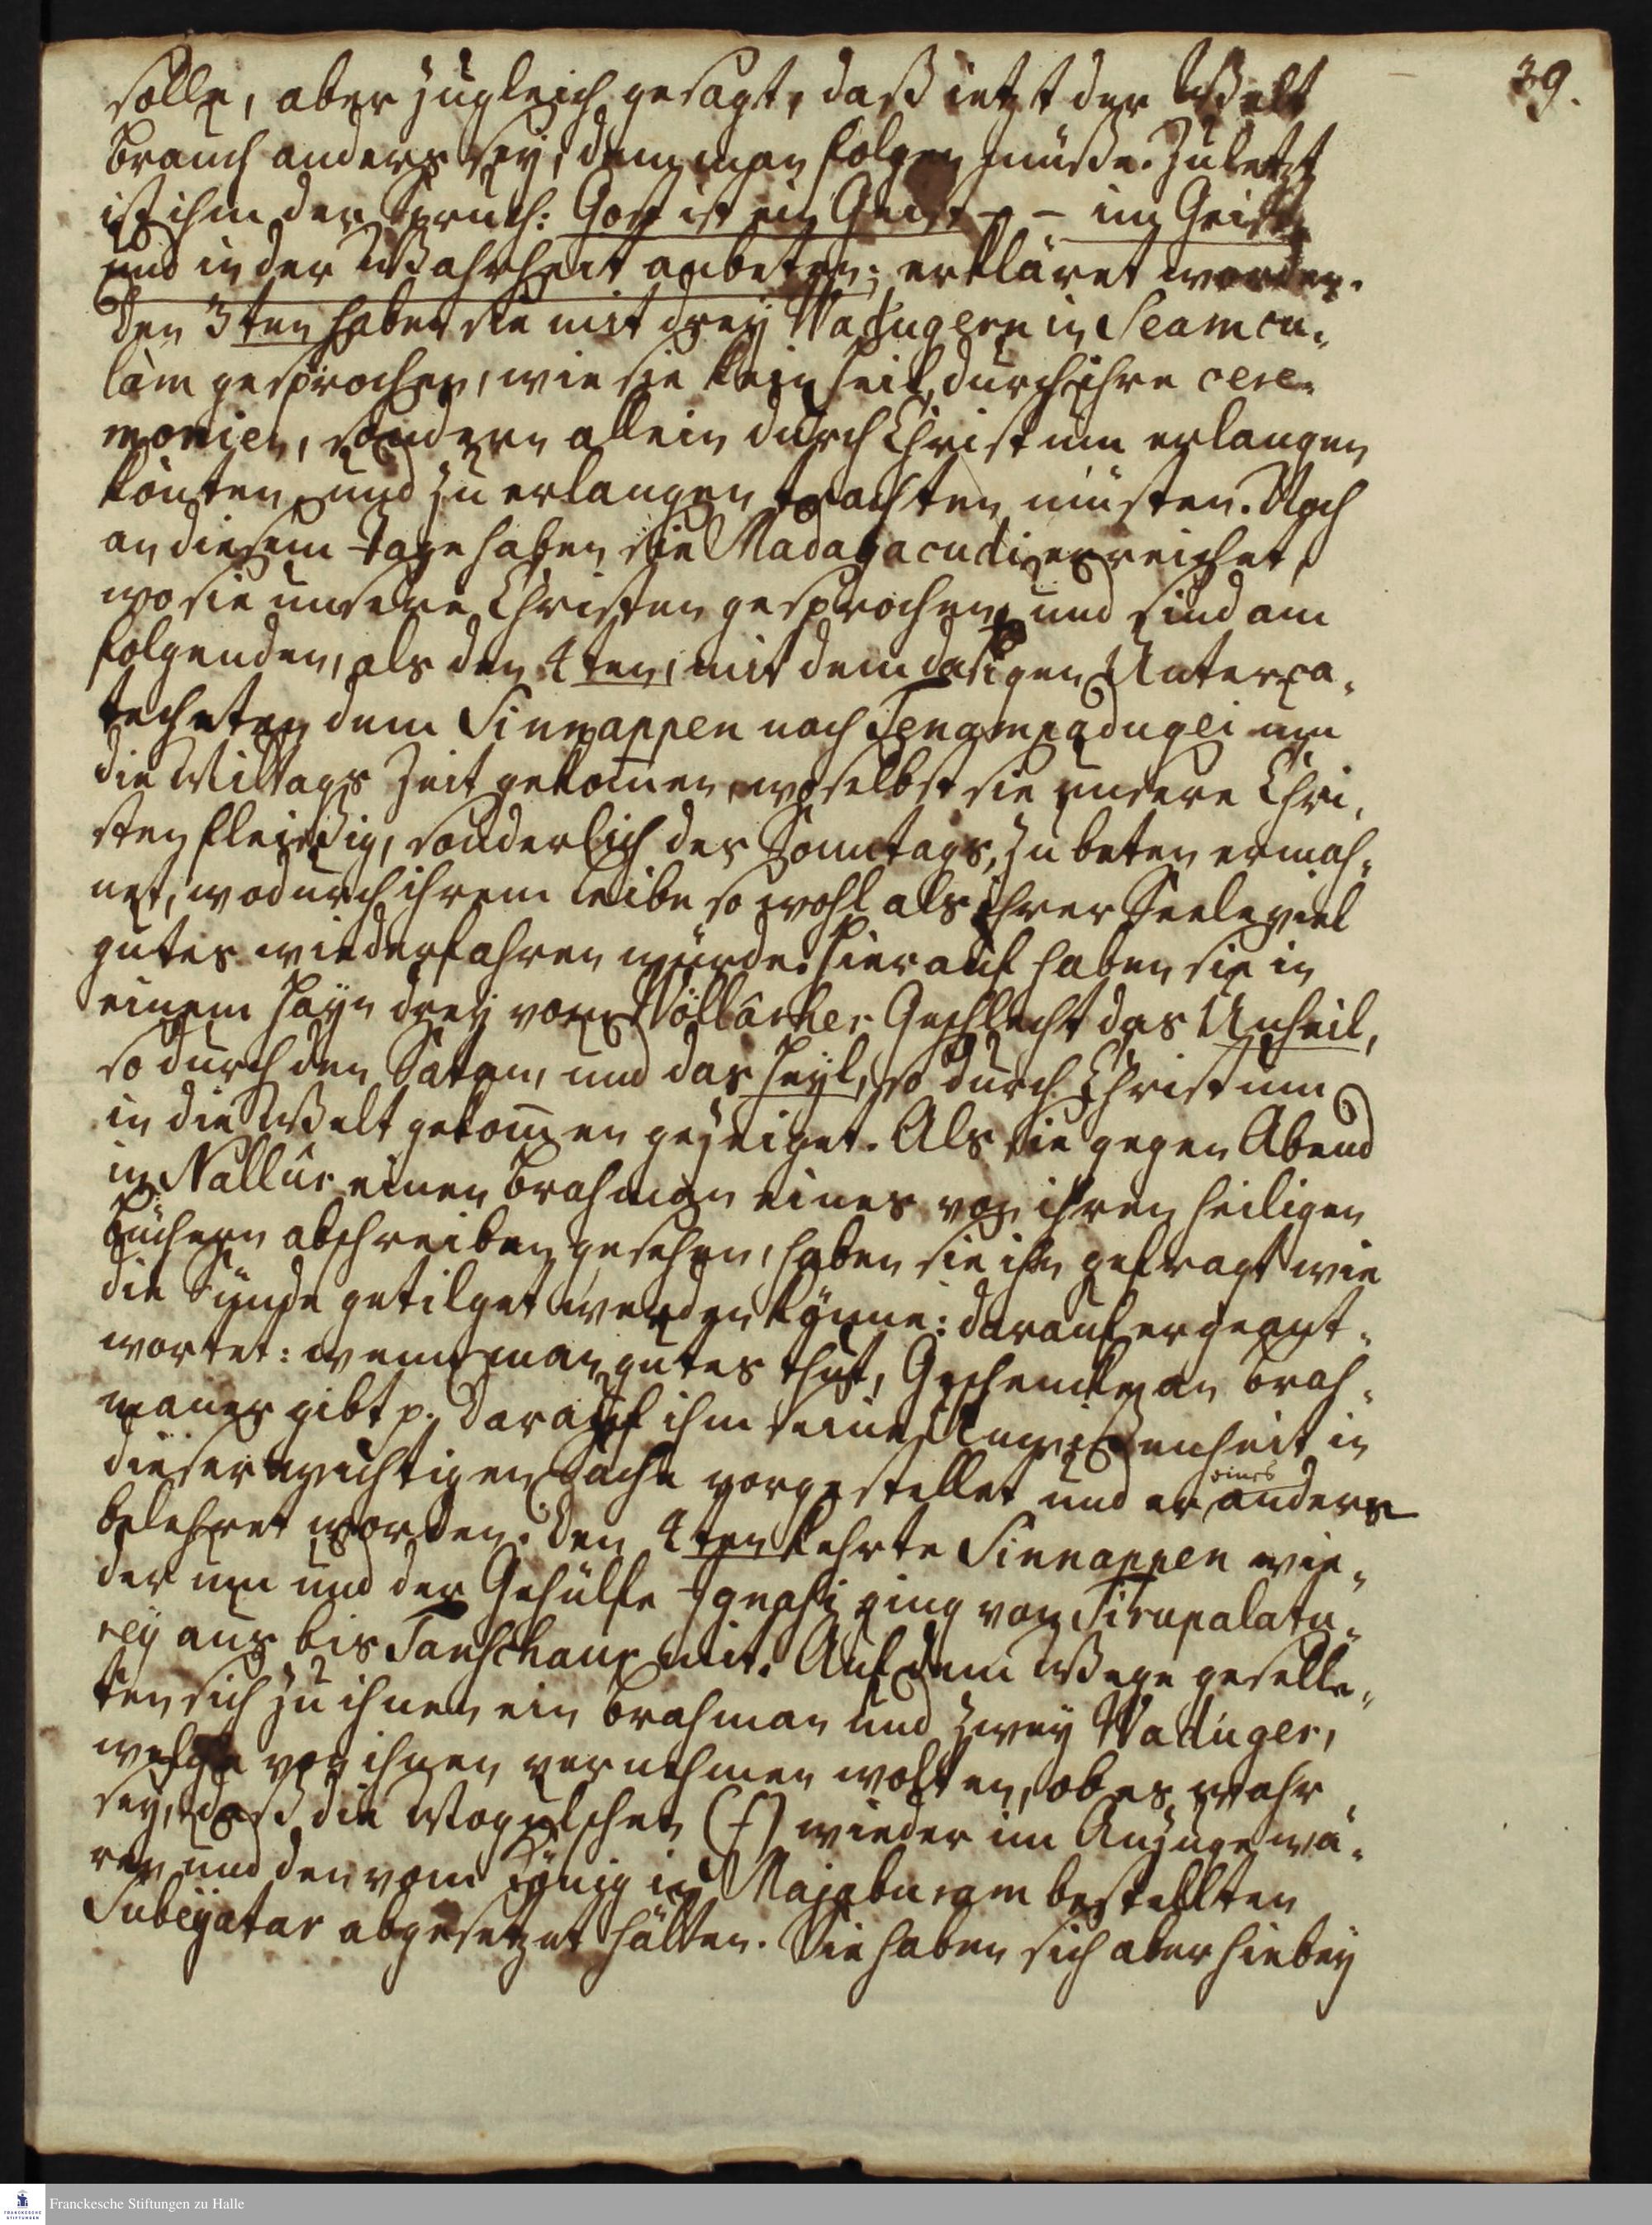 39.
solle, aber zugleich gesagt, daß ietzt der Welt
Brauch anders sey, dem man folgen müße. Zuletzt
ist ihm der Spruch: Gott ist ein Geist - - im Geist
und in der Wahrheit anbeten; erkläret worden.
Den 3ten haben sie mit drey Waduger in Seamcu-
lam gesprochen, wie sie kein Heil durch ihre cere-
monien, sondern allein durch Christum erlangen
könten, und zu erlangen trachten müsten. Noch
an diesem Tage haben sie Madagacudi erreichet,
wo sie unsere Christen gesprochen, und sind am
folgenden, als den 4ten, mit dem dasigen Unterca-
techeten dem Sinnappen nach Tenampadugei um
die Mittags Zeit gekommen, woselbst sie unsere Chri-
sten fleißig, sonderlich des Sonntags, zu beten ermah-
net, wodurch ihrem Leibe so wohl als ihrer Seele viel
gutes wiederfahren würde. Hierauf haben sie in
einem Hayn drey vom Wöllârher Geschlecht das Unheil,
so durch den Satan, und das Heyl, so durch Christum
in die Welt gekommen gezeiget. Als sie gegen Abend
in Nallûr einen Brahman eines von ihren heiligen
Büchern abschreiben gesehen, haben sie ihn gefragt wie
die Sünde getilget werden könne: darauf er geant-
wortet: wenn man gutes thut, Geschencke an Brah-
maner gibt p. Darauf ihm seine Unwißenheit in
dieser wichtigen Sache vorgestellet und er eines anders
belehret worden. Den 4ten kehrte Sinnappen wie-
der um und der Gehülfe Ignasi ging von Tirupalatu-
rey aus bis Tanschaur mit. Auf dem Wege geselle-
ten sich zu ihnen ein Brahman und zwey Waduger,
welche von ihnen vernehmen wolten, ob es wahr
sey, daß die Mogulschen (f) wieder im Anzuge wä-
ren und den vom König in Majaburam bestellten
Subeÿatar abgesetzet hätten. Sie haben sich aber hiebey
Franckesche Stiftungen zu Halle